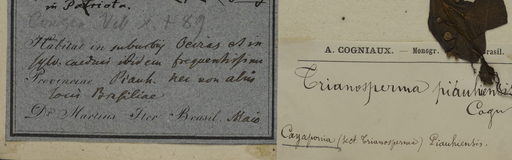 in Patriota.
Habitat in suburbiis Oeiras et in
sylv. caeduis ibidem frequentissime
Provinciae Piauh. nec non aliis
locis Brasiliae
Dr Martius Iter Brasil. Maio
A. COGNIAUX. — Monogr. Brasil.
Trianosperma piauhensis
Cogn
Cayaponia (sect Trianosperma) Piauhiensis.